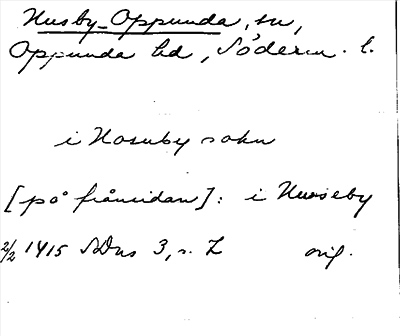 Husby-Oppunda, sn,
Oppunda hd, Söderm. l.
i Hosuby sokn
[på frånsidan]: i Huuseby
2/2 1415 SDns 3, s. 2 orig.